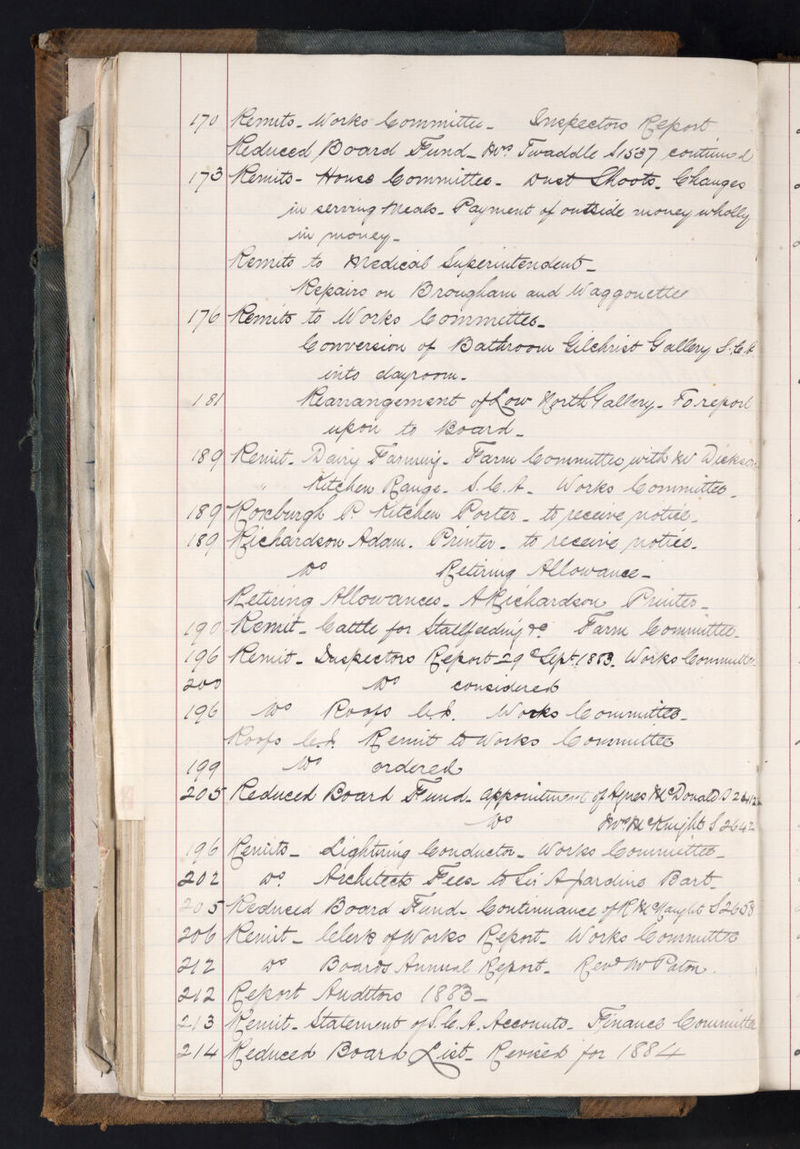 170 Remits - Works Committee - Inspectors Report
Reduced Board Fund - Mrs Twaddle S1537 continued
173 Remits - House Committee - Dust Shoots - Changes
in serving Meals - Payment of outside money wholly
in money -
Remits to Medical Superintendent -
Repairs on Brougham and Waggonette
176 Remits to Works Committee -
Conversion of Bathroom Gilchrist Gallery S.C.A
into dayroom -
181 Rearrangement of Low North Gallery - To report
upon to Board -
189 Remit - Dairy Farming - Farm Committee with Mr Dickson
" Kitchen Range - S.C.A - Works Committee -
189 Roxburgh P. Kitchen Porter - to receive notice -
189 Richardson Adam. Printer - to receive notice -
Do Retiring Allowance -
Retiring Allowances - A Richardson Printer -
190 Remit - Cattle for Stallfeeding &c. Farm Committee -
196 Remit - Inspectors Report 29 Sept. 1883. Works Committee
200 Do considered
196 Do Roofs C.I. Works Committee -
Roofs C.I. Remit to Works Committee
199 Do ordered
205 Reduced Board Fund - appointment of Agnes McDonald S 2412
Do Mrs McKnight S 2642
196 Remits - Lightning Conductor - Works Committee -
202 Do. Architects Fees - to Sir A Jardine Bart -
205 Reduced Board Fund - Continuance of R McNaught S2658
206 Remit - Clerk of Works Report - Works Committee
212 Do Boards Annual Report - Revd Mr Paton.
212 Report Auditors 1883 -
213 Remit - Statement of S.C.A. Accounts - Finance Committee
214 Reduced Board List - Revised for 1884